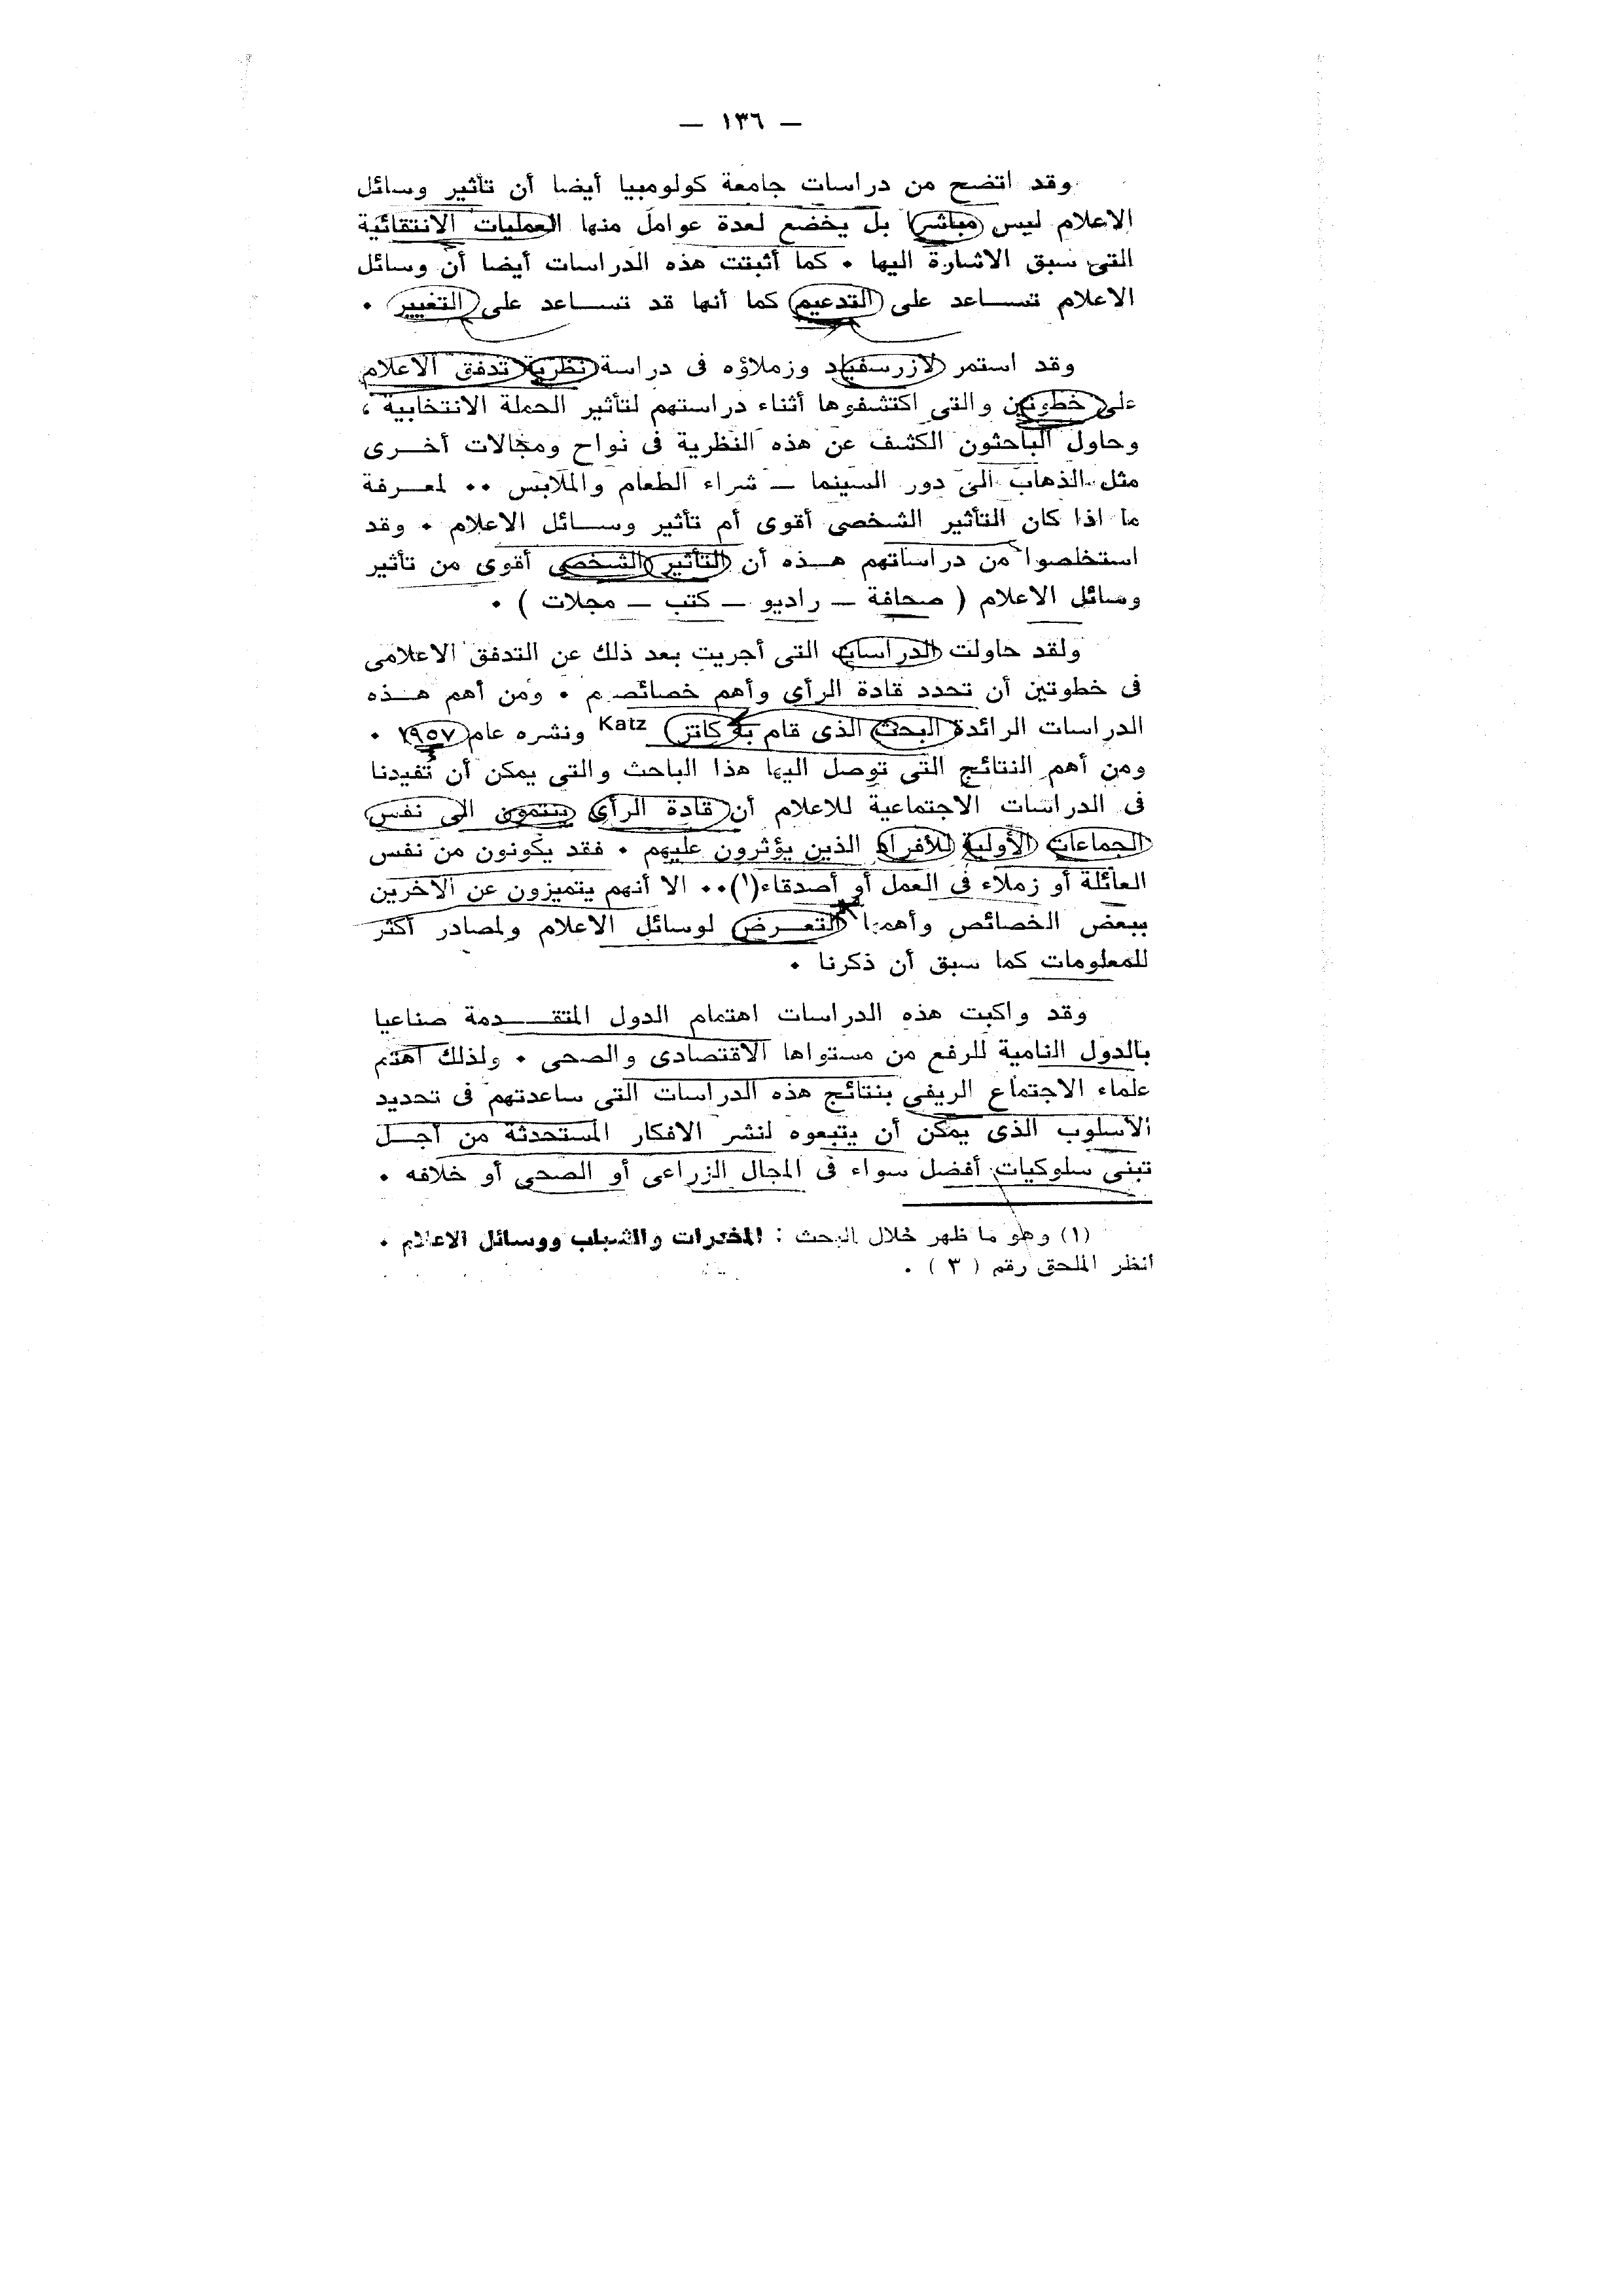 — ١٣٦ —
وقد اتضح من دراسات جامعة كولومبيا أيضا أن تأثير وسائل
الاعلام ليس مباشرا بل يخضع لعدة عوامل منها العمليات الانتقائية
التى سبق الاشارة اليها ٠ كما أثبتت هذه الدراسات أيضا أن وسائل
الاعلام تساعد على التدعيم كما أنها قد تساعد على التغيير ٠
وقد استمر لازرسفيلد وزملاؤه فى دراسة نظرية تدفق الاعلام
على خطوتين والتى اكتشفوها أثناء دراستهم لتأثير الحملة الانتخابية ،
وحاول الباحثون الكشف عن هذه النظرية فى نواح ومجالات أخرى
مثل الذهاب الى دور السينما — شراء الطعام والملابس ٠٠ لمعرفة
ما اذا كان التأثير الشخصى أقوى أم تأثير وسائل الاعلام ٠ وقد
استخلصوا من دراساتهم هذه أن التأثير الشخصى أقوى من تأثير
وسائل الاعلام ( صحافة — راديو — كتب — مجلات ) ٠
ولقد حاولت الدراسات التى أجريت بعد ذلك عن التدفق الاعلامى
فى خطوتين أن تحدد قادة الرأى وأهم خصائصهم ٠ ومن أهم هذه
الدراسات الرائدة البحث الذى قام به كاتز Katz ونشره عام ١٩٥٧ ٠
ومن أهم النتائج التى توصل اليها هذا الباحث والتى يمكن أن تفيدنا
فى الدراسات الاجتماعية للاعلام أن قادة الرأى ينتمون الى نفس
الجماعات الأولية للأفراد الذين يؤثرون عليهم ٠ فقد يكونون من نفس
العائلة أو زملاء فى العمل أو أصدقاء(١)٠٠ الا أنهم يتميزون عن الآخرين
ببعض الخصائص وأهمها التعرض لوسائل الاعلام ولمصادر أكثر
للمعلومات كما سبق أن ذكرنا ٠
وقد واكبت هذه الدراسات اهتمام الدول المتقدمة صناعيا
بالدول النامية للرفع من مستواها الاقتصادى والصحى ٠ ولذلك اهتم
علماء الاجتماع الريفى بنتائج هذه الدراسات التى ساعدتهم فى تحديد
الأسلوب الذى يمكن أن يتبعوه لنشر الافكار المستحدثة من أجل
تبنى سلوكيات أفضل سواء فى المجال الزراعى أو الصحى أو خلافه ٠
(١) وهو ما ظهر خلال البحث : المخدرات والشباب ووسائل الاعلام ٠
انظر الملحق رقم ( ٣ ) ٠